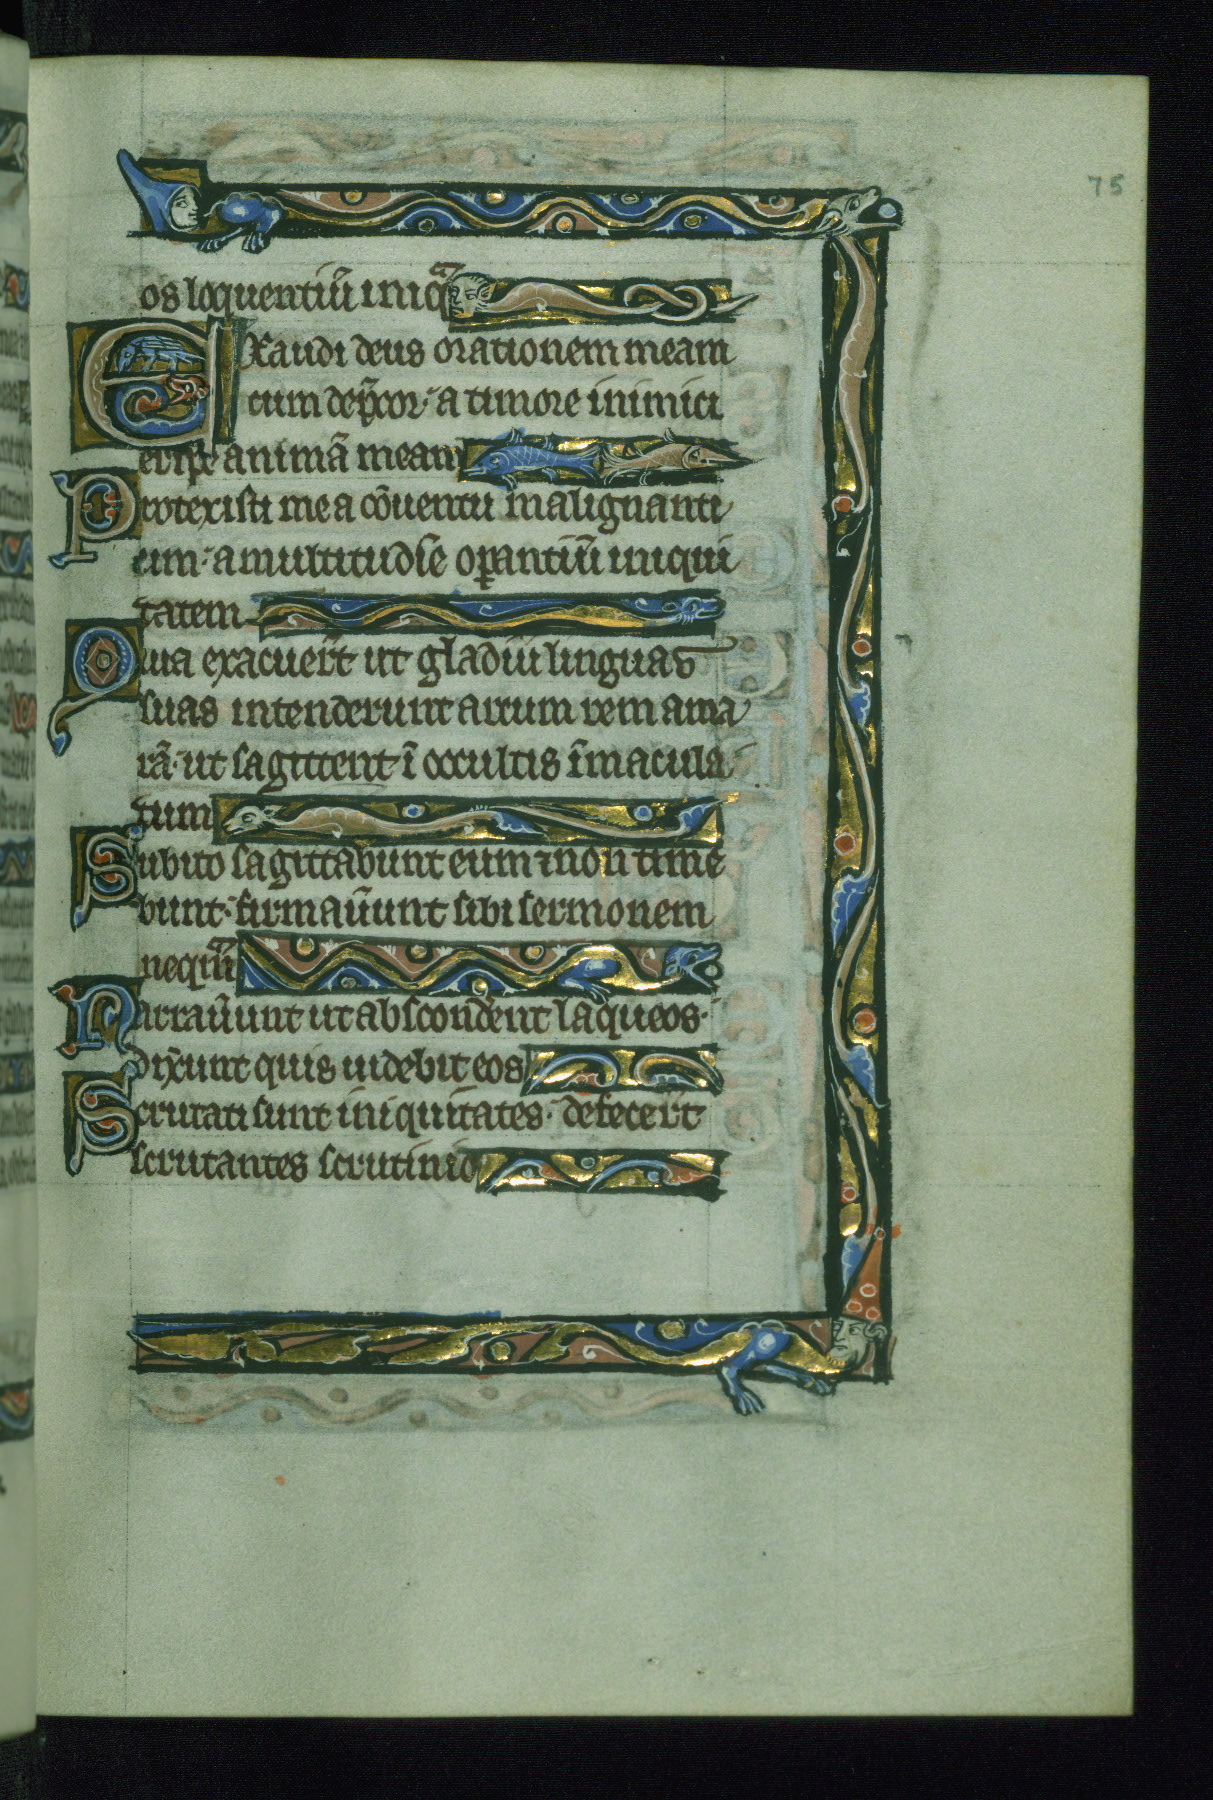 75
os loquentiū iniq̄
Exaudi deus orationem meam
cum dep̄cor· a timore inimici
eripe animā meam
Protexisti me a cōuentu malignanti
um· a multitudīe oꝑantiū iniqui
tatem
Quia exacuer̄t ut gladiū linguas
suas intenderunt arcum rem ama
rā· ut sagittent ī occultis īmacula
tum
Subito sagittabunt eum ⁊ non time
bunt· firmau̅unt sibi sermonem
nequā
Narrau̅unt ut absconder̄ent laqueos·
dix̄unt quis uidebit eos
Scrutati sunt iniquitates· defecer̄t
scrutantes scrutinio